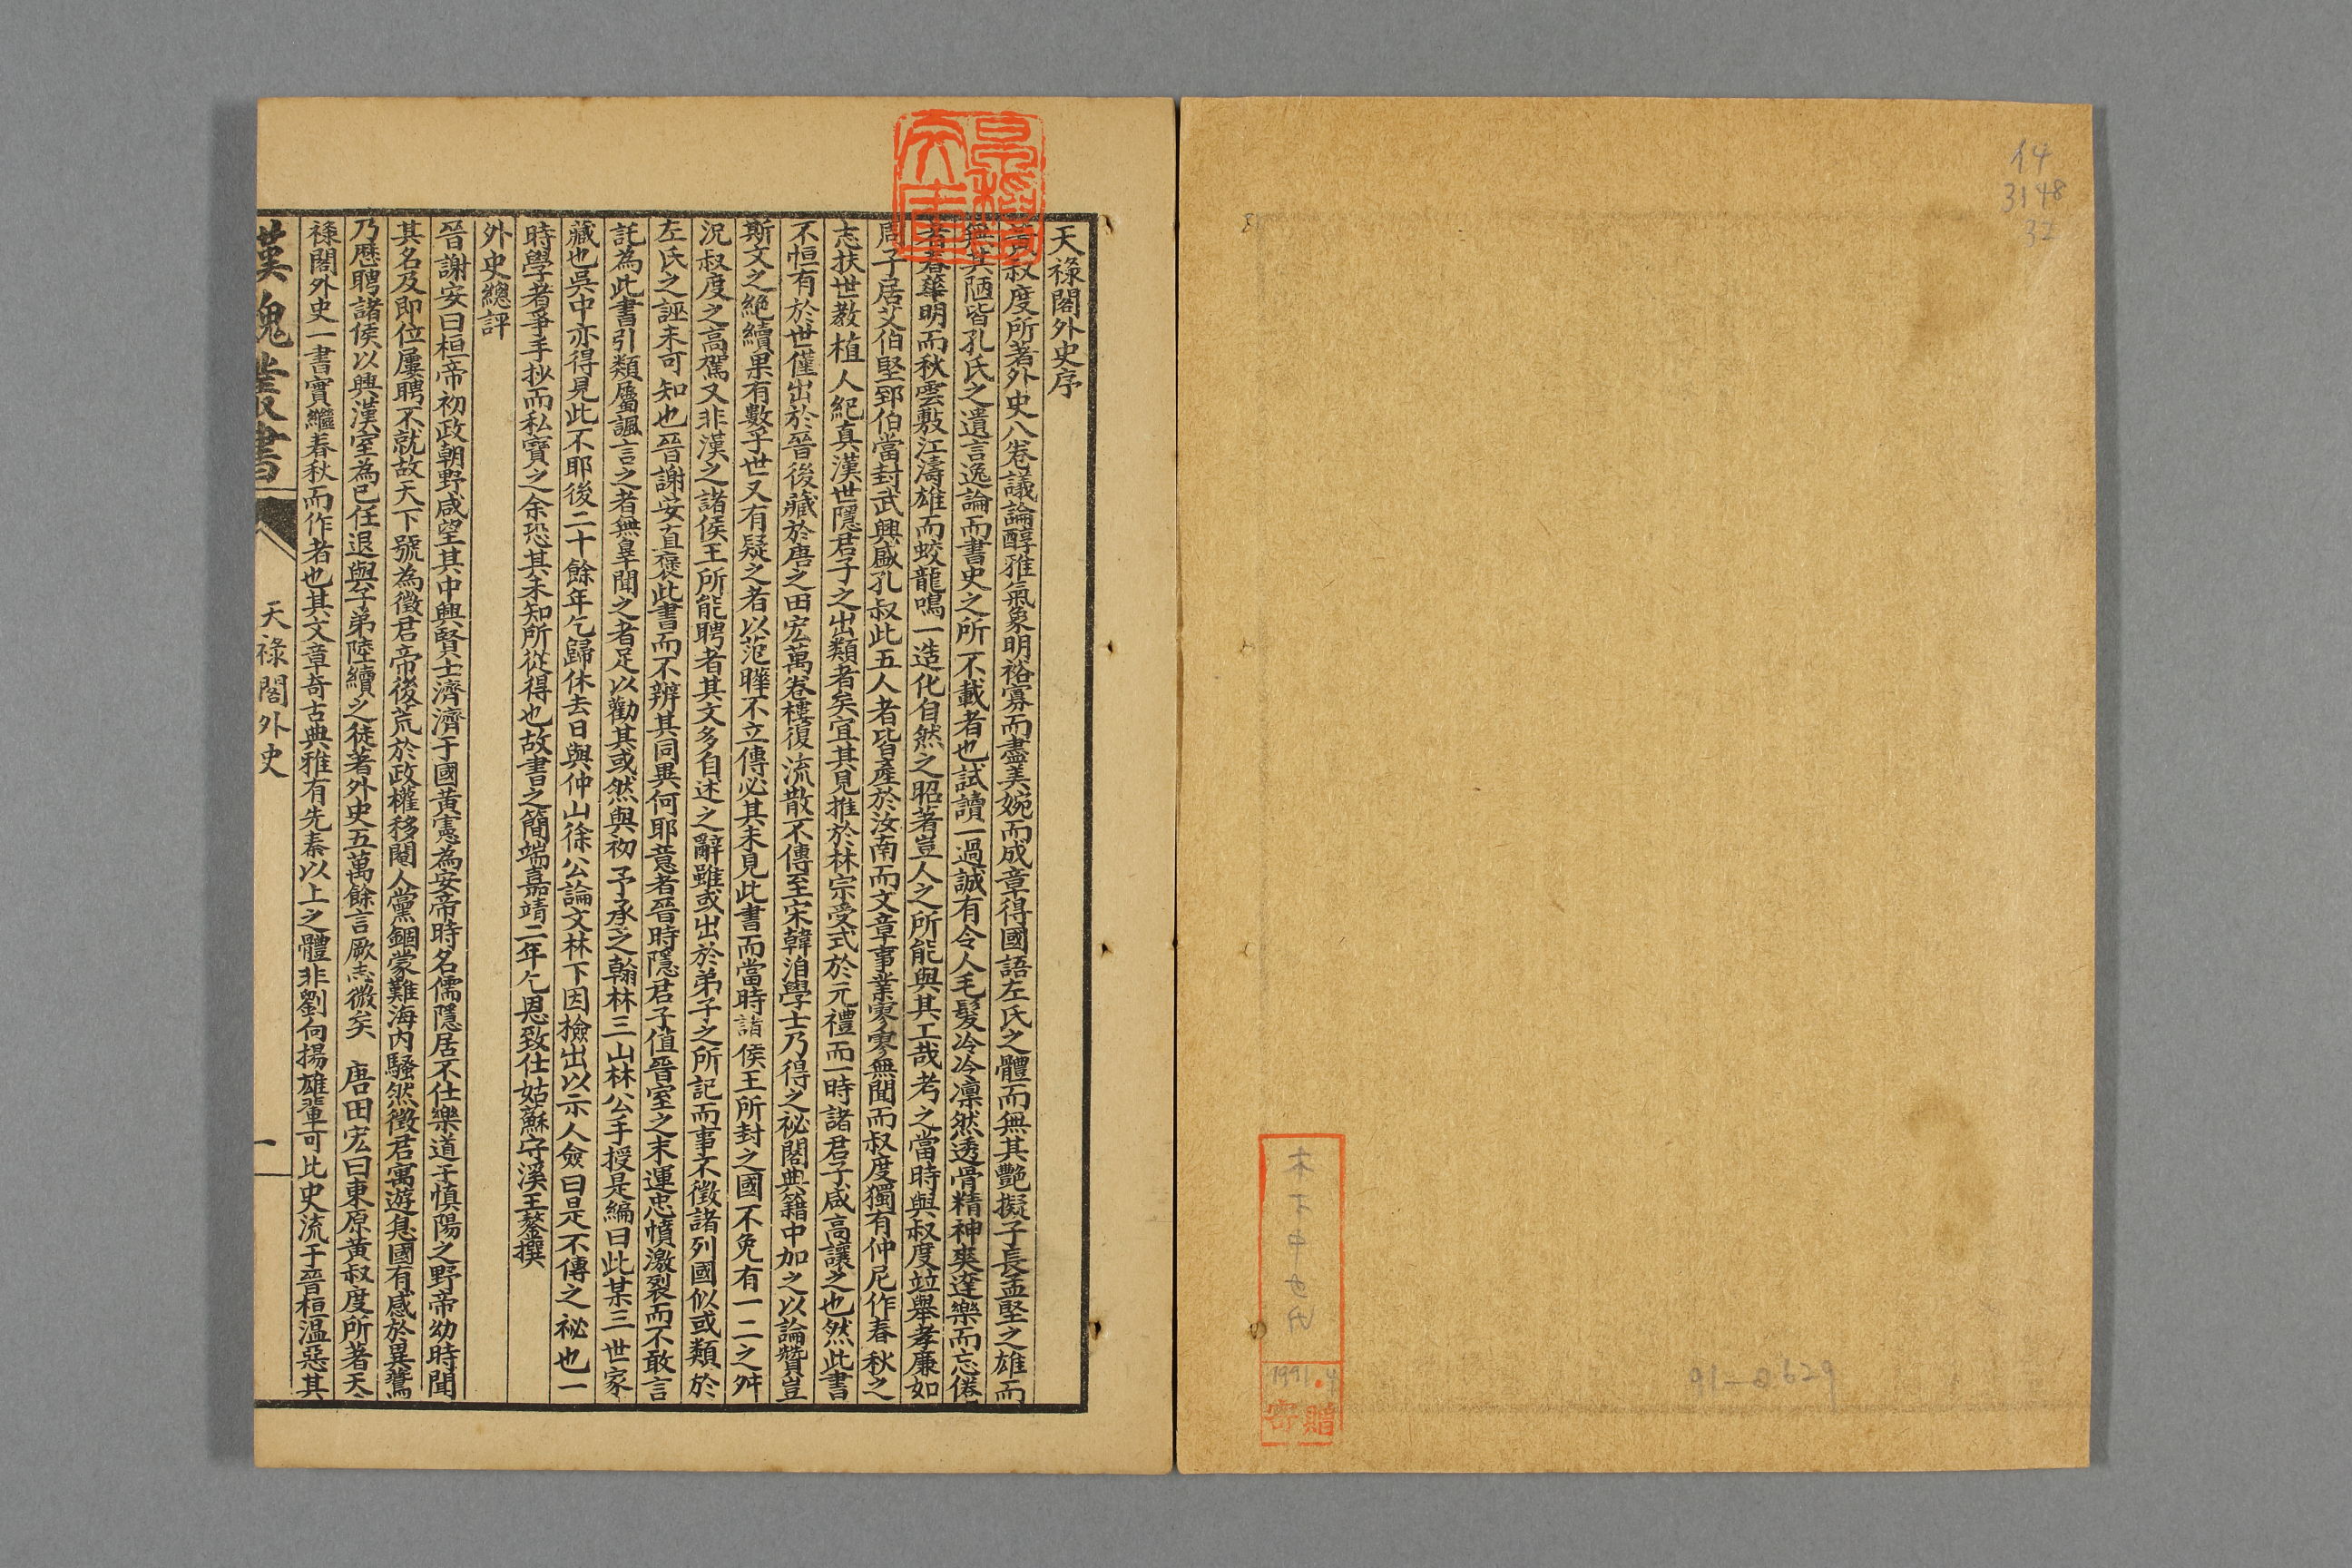 14
3148
32
木下中也氏
1991.4
寄贈
91-02629
天祿閣外史序
叔度所著外史八卷議論醇雅氣象明裕寡而盡美婉而成章得國語左氏之體而無其艷擬子長孟堅之雄而
無其陋皆孔氏之遺言逸論而書史之所不載者也試讀一過誠有令人毛髮冷冷凛然透骨精神爽達樂而忘倦
者春華明而秋雲敷江濤雄而蛟龍鳴一造化自然之昭著豈人之所能與其工哉考之當時與叔度竝舉孝廉如
周子居艾伯堅郅伯當封武興盛孔叔此五人者皆產於汝南而文章事業寥寥無聞而叔度獨有仲尼作春秋之
志扶世教植人紀真漢世隱君子之出類者矣宜其見推於林宗受式於元禮而一時諸君子咸高讓之也然此書
不恒有於世僅出於晉後藏於唐之田宏萬卷樓復流散不傳至宋韓洎學士乃得之祕閣典籍中加之以論贊豈
斯文之絕續果有數乎世又有疑之者以范曄不立傳必其未見此書而當時諸侯王所封之國不免有一二之舛
況叔度之高駕又非漢之諸侯王所能聘者其文多自述之辭雖或出於弟子之所記而事不徵諸列國似或類於
左氏之誣未可知也晉謝安直褒此書而不辨其同異何耶意者晉時隱君子值晉室之末運忠憤激裂而不敢言
託為此書引類屬諷言之者無辠聞之者足以勸其或然與初予承之翰林三山林公手授是編曰此某三世家
藏也吳中亦得見此不耶後二十餘年乞歸休去日與仲山徐公論文林下因檢出以示人僉曰是不傳之祕也一
時學者爭手抄而私寶之余恐其未知所從得也故書之簡端嘉靖二年乞恩致仕姑蘇守溪王鏊撰
外史總評
晉謝安曰桓帝初政朝野咸望其中興賢士濟濟于國黃憲為安帝時名儒隱居不仕樂道于慎陽之野帝幼時聞
其名及即位屢聘不就故天下號為徵君帝後荒於政權移閹人黨錮蒙難海內騷然徵君寓遊息國有感於異鵞
乃歷聘諸侯以興漢室為己任退與子弟陸續之徒著外史五萬餘言厥志微矣　唐田宏曰東原黃叔度所著天
祿閣外史一書實繼春秋而作者也其文章奇古典雅有先秦以上之體非劉向揚雄輩可比此史流于晉桓溫惡其
漢魏叢書
天祿閣外史
一